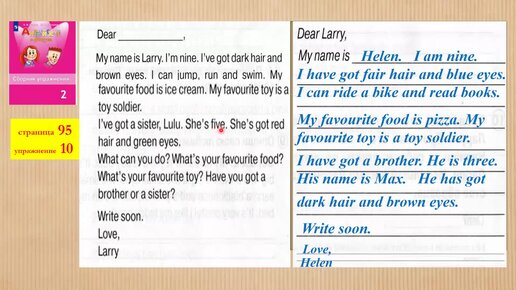 Английский
Сборник упражнений
2
страница 95
упражнение 10
Dear ____________,
My name is Larry. I'm nine. I've got dark hair and
brown eyes. I can jump, run and swim. My
favourite food is ice cream. My favourite toy is a
toy soldier.
I've got a sister, Lulu. She's five. She's got red
hair and green eyes.
What can you do? What's your favourite food?
What's your favourite toy? Have you got a
brother or a sister?
Write soon.
Love,
Larry
Dear Larry,
My name is Helen. I am nine.
I have got fair hair and blue eyes.
I can ride a bike and read books.
My favourite food is pizza. My
favourite toy is a toy soldier.
I have got a brother. He is three.
His name is Max. He has got
dark hair and brown eyes.
Write soon.
Love,
Helen